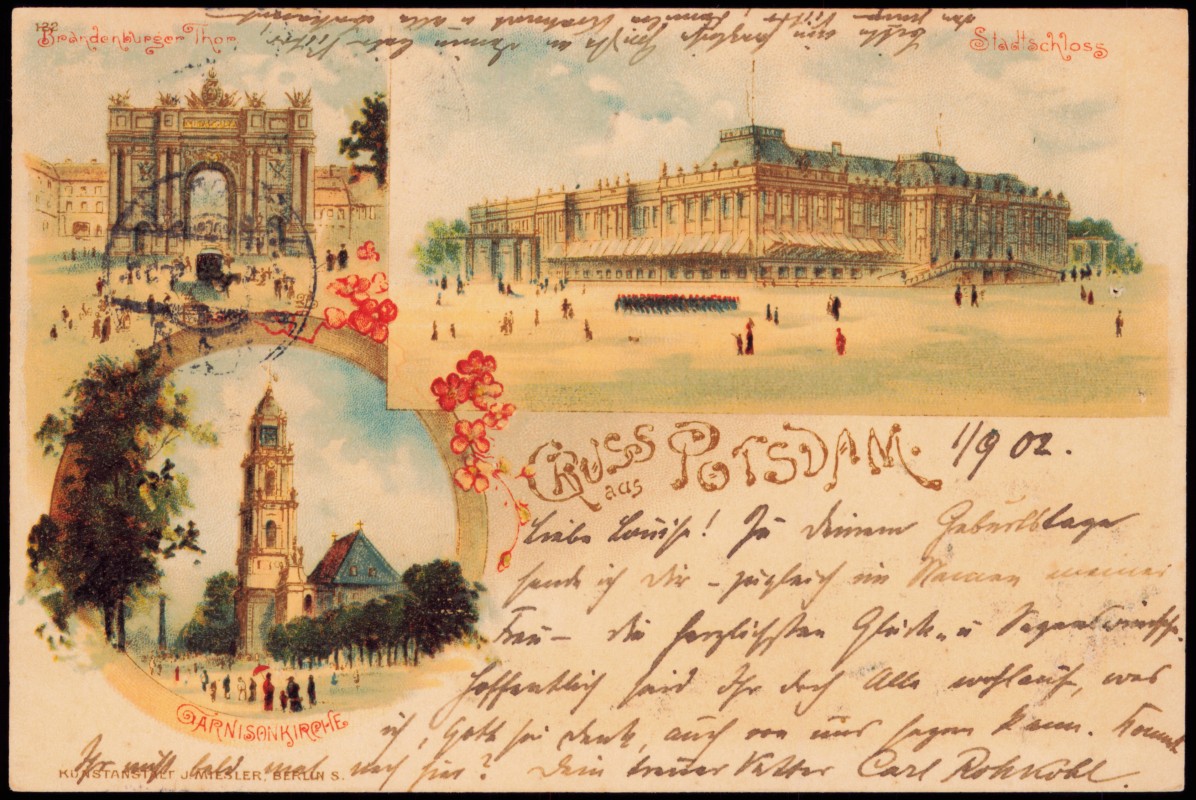 122
Brandenburger Thor
Stadtschloss
GRUSS
aus
POTSDAM.
1/9 02.
Liebe Louise! Zu deinem Geburtstage
sende ich dir – zugleich im Namen meiner
Frau – die herzlichsten Glück- u Segenswünsche.
Hoffentlich seid Ihr doch Alle wohlauf, was
ich, Gott sei Dank, auch von uns sagen kann. Kommt
Ihr nicht bald mal nach hier? Dein treuer Vetter Carl Rohkohl
GARNISONKIRCHE
KUNSTANSTALT J. MIESLER, BERLIN S.